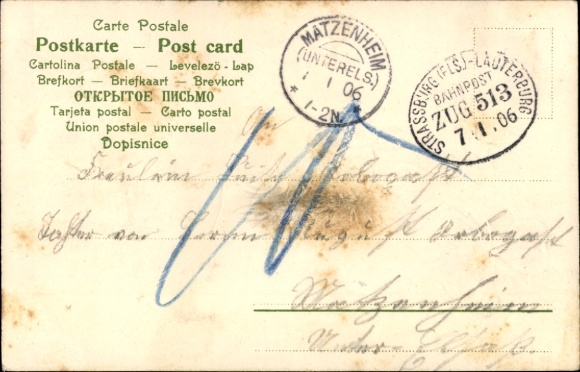 Carte Postale
Postkarte — Post card
Cartolina Postale — Levelező-Lap
Brefkort — Briefkaart — Brevkort
ОТКРЫТОЕ ПИСЬМО
Tarjeta postal — Carto postal
Union postale universelle
Dopisnice
MATZENHEIM
(UNTERELS.)
7 1 06
* 1-2N. *
STRASSBURG (ELS)-LAUTERBURG
BAHNPOST
ZUG 513
7.1.06
An
Fräulein Arbogast
Tochter von Herrn August Arbogast
Matzenheim
Unter-Elsaß